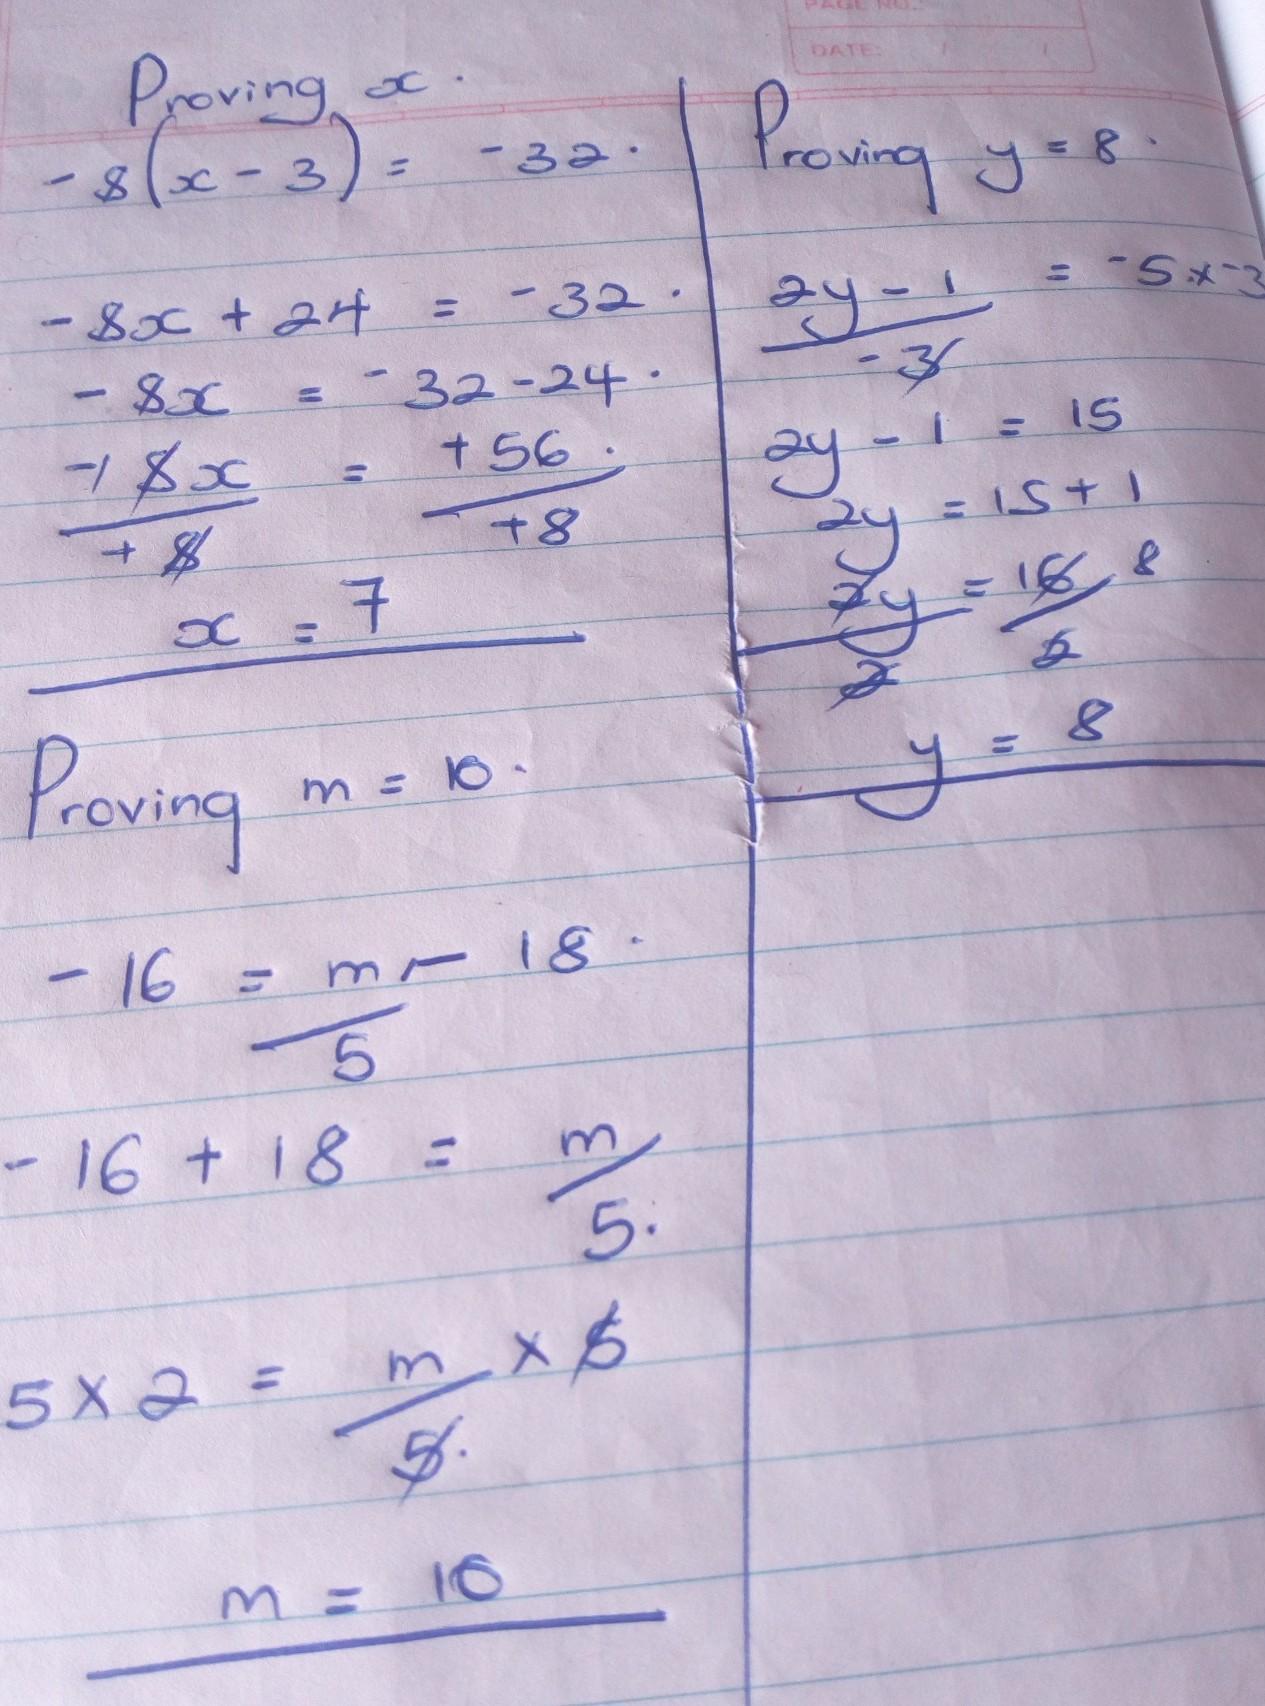 PAGE NO.:
DATE: / /
Proving x.
-8(x-3) = -32.
-8x + 24 = -32.
-8x = -32-24.
-18x = +56.
+8 +8
x = 7
Proving m = 10.
-16 = m - 18.
5
-16 + 18 = m
5.
5 x 2 = m x 5
5.
m = 10
Proving y = 8.
2y - 1 = -5x-3
-3
2y - 1 = 15
2y = 15 + 1
2y = 16 8
2 2
y = 8